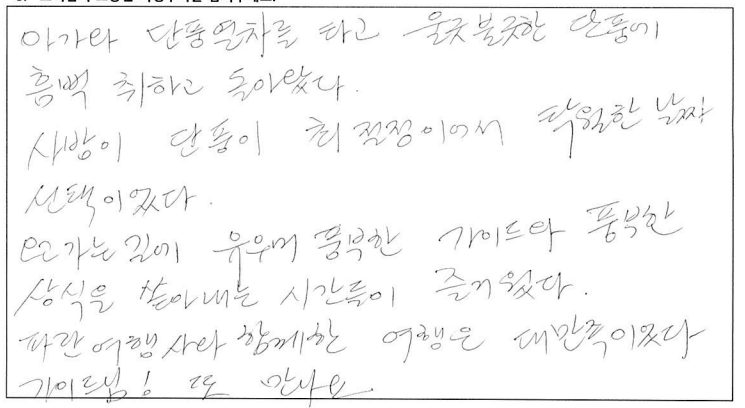 아가와 단풍열차를 타고 울긋불긋한 단풍에
흠뻑 취하고 돌아왔다.
사방이 단풍이 최절정이어서 탁월한 날짜
선택이었다.
오가는 길에 유우머 풍부한 가이드와 풍부한
상식을 쏟아내는 시간들이 즐거웠다.
파란여행사와 함께한 여행은 대만족이었다
가이드님! 또 만나요.